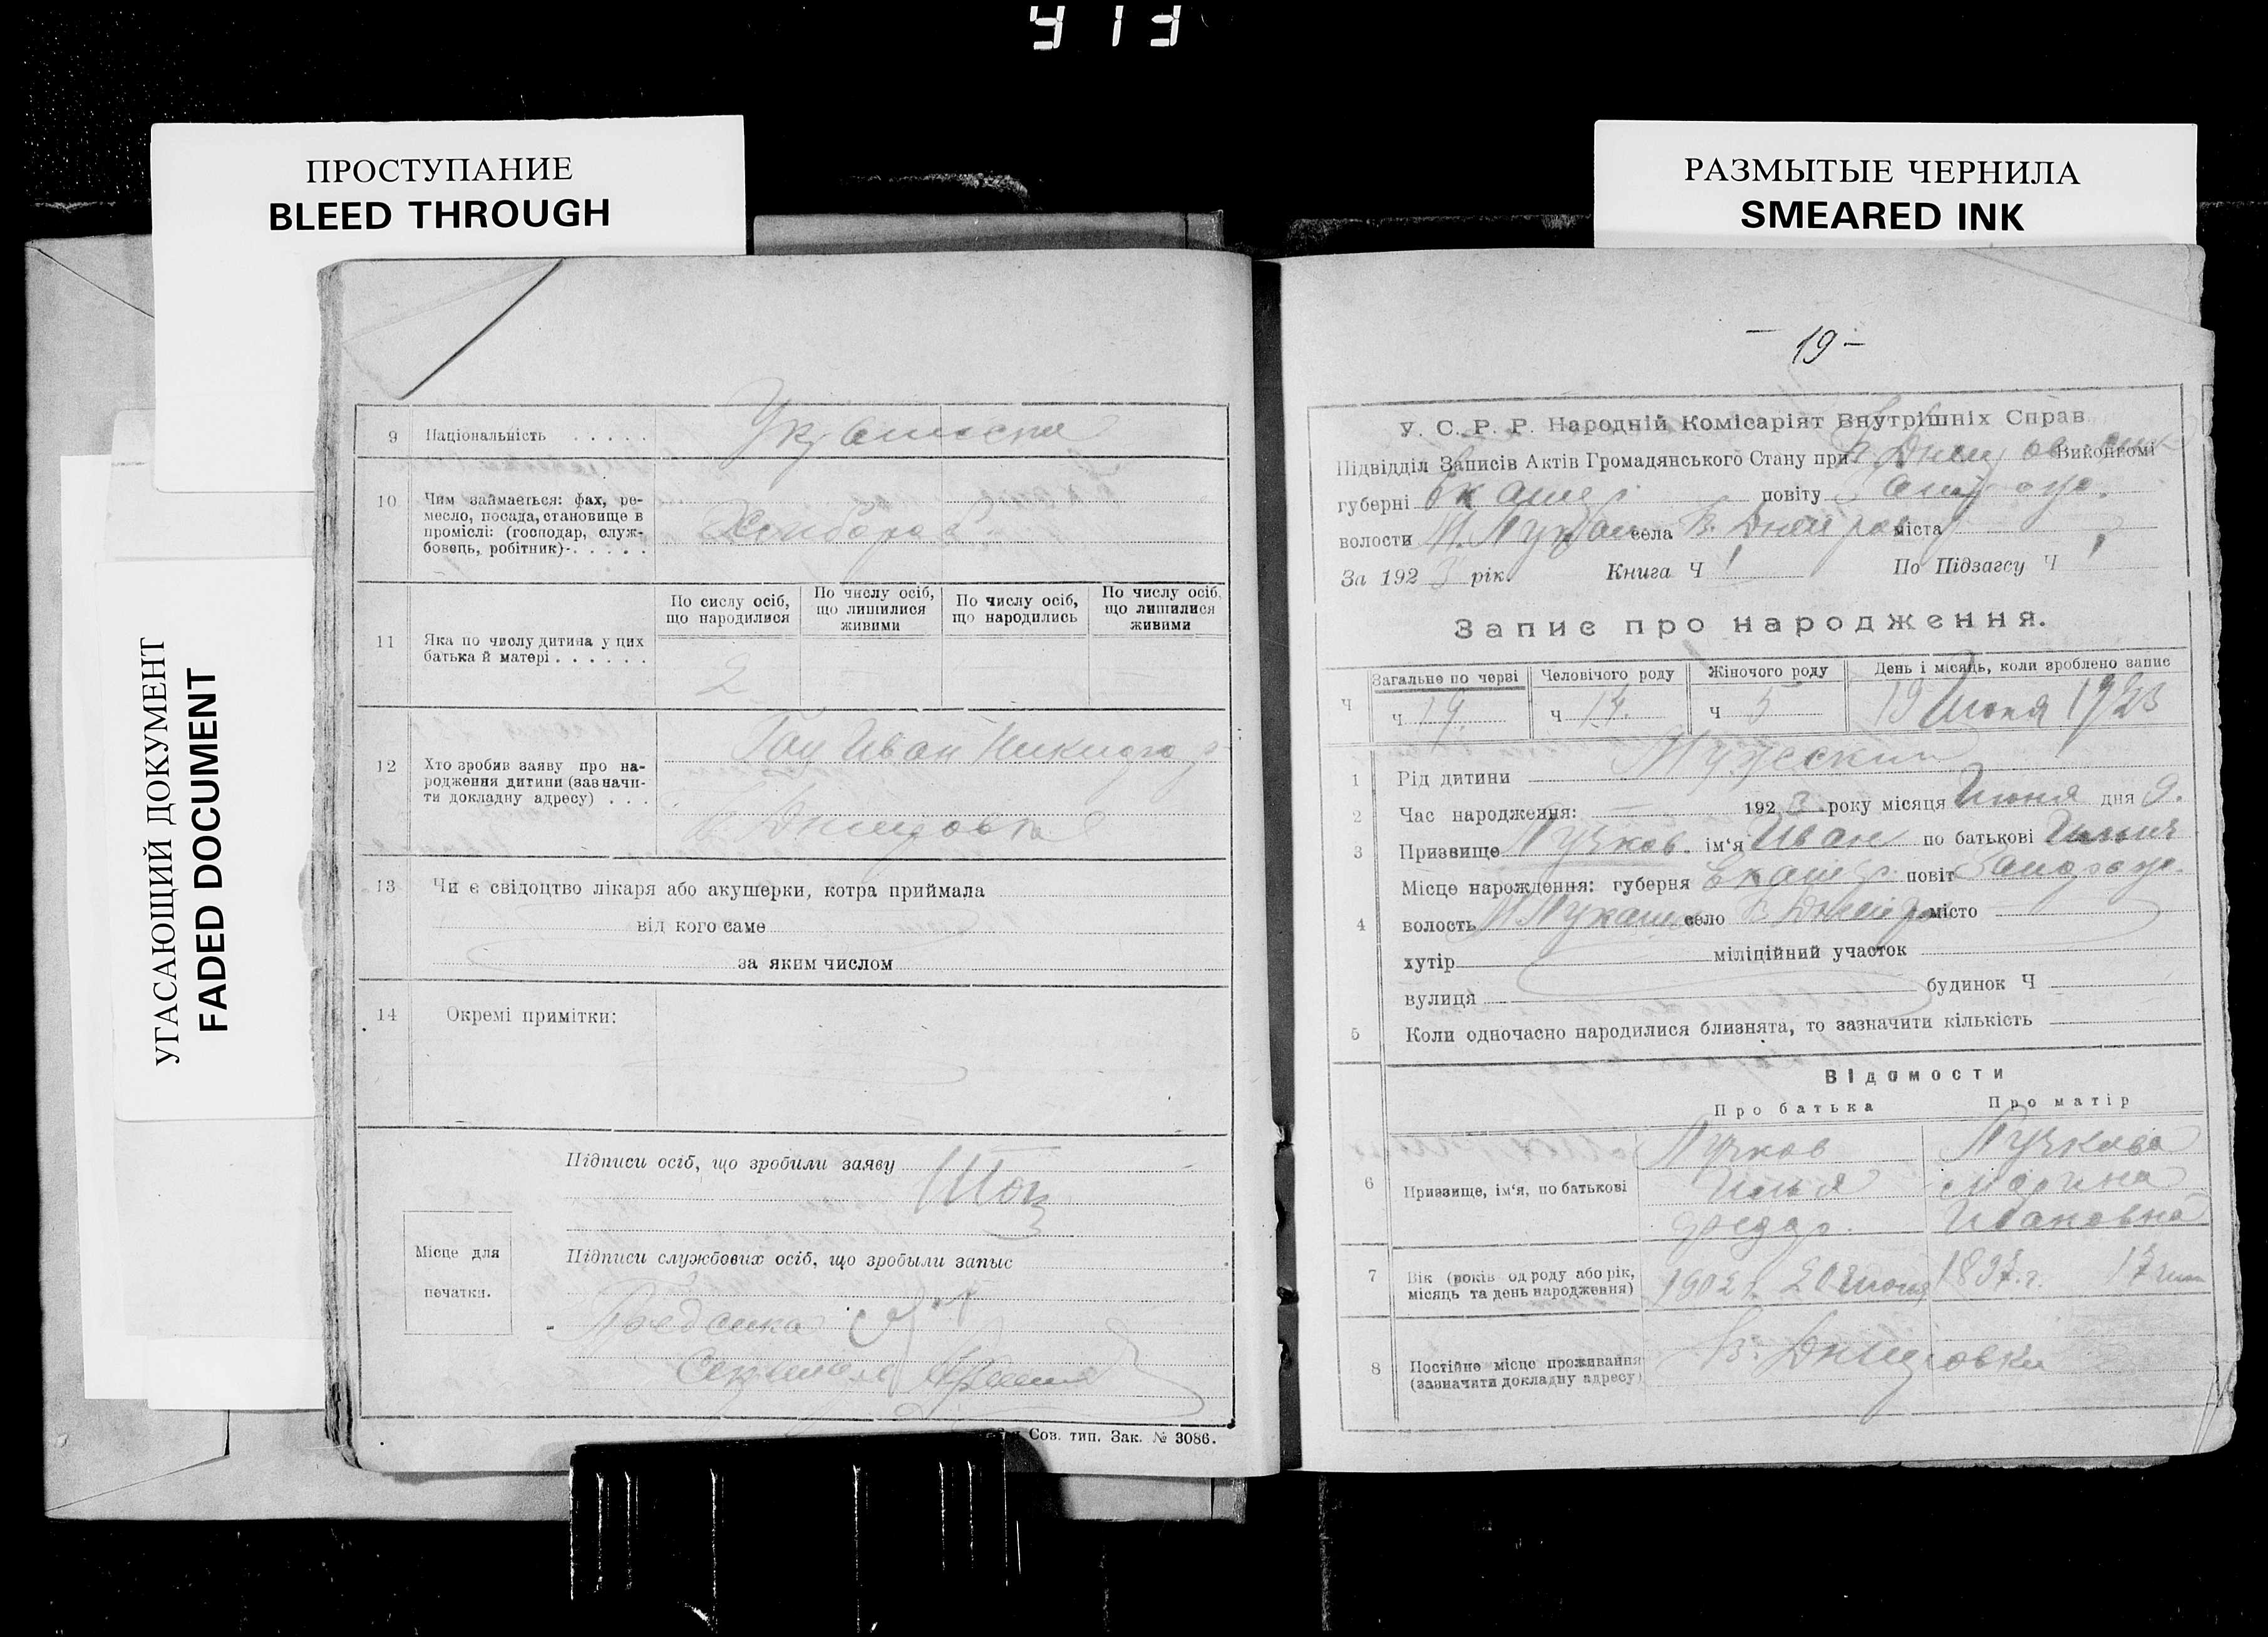 913
ПРОСТУПАНИЕ
BLEED THROUGH
РАЗМЫТЫЕ ЧЕРНИЛА
SMEARED INK
УГАСАЮЩИЙ ДОКУМЕНТ
FADED DOCUMENT
9 Національність . . . . .
10 Чим займається: фах, ре-
месло, посада, становище в
проміслі: (господар, служ-
бовець, робітник)-. . . . .
Хлибороб
11 Яка по числу дитина у цих
батька й матері . . . . . .
По сислу осіб,
що народилися
По числу осіб,
що лишилися
живими
По числу осіб,
що народились
По числу осіб,
що лишилися
живими
2
12 Хто зробив заяву про на-
родження дитини (зазначи-
ти докладну адресу) . . .
Иван
В. Днепровка
13 Чи є свідоцтво лікаря або акушерки, котра приймала
від кого саме
за яким числом
14 Окремі примітки:
Підписи осіб, що зробили заяву
Місце для
печатки.
Підписи службових осіб, що зробыли запыс
Сов. тип. Зак. № 3086.
— 19 —
У. С. Р. Р. Народній Комісаріят Внутрішніх Справ
Підвідділ Записів Актів Громадянського Стану при В. Днепров Виконкомі
губерні Екатер. повіту Запорож.
волости села В. Днепров міста
За 192 3 рік. Книга Ч 1 По Підзагсу Ч 1
Запис про народження.
Ч Загальне по черзі Человічого роду Жіночого роду День і місяць, коли зроблено запис
Ч 19. Ч 14. Ч 5 19 Июня 1923
1 Рід дитини Мужеский
2 Час народження: 192 3 року місяця Июня дня 9.
3 Призвище Пучков. ім'я Иван по батькові Ильич
4 Місце нарождення: губерня Екатер. повіт Запорож.
волость село В. Днепров місто
хутір міліційний участок
вулиця будинок Ч
5 Коли одночасно народилися близнята, то зазначити кількість
Відомости
Про батька Про матір
6 Призвище, ім'я, по батькові
Пучков Пучкова
Илья Марина
Федор. Ивановна
7 Вік (років од роду або рік,
місяць та день народження)
1902 г. 20 Июня 1897. г.
8 Постійне місце проживання
(зазначити докладну адресу)
В. Днепровка